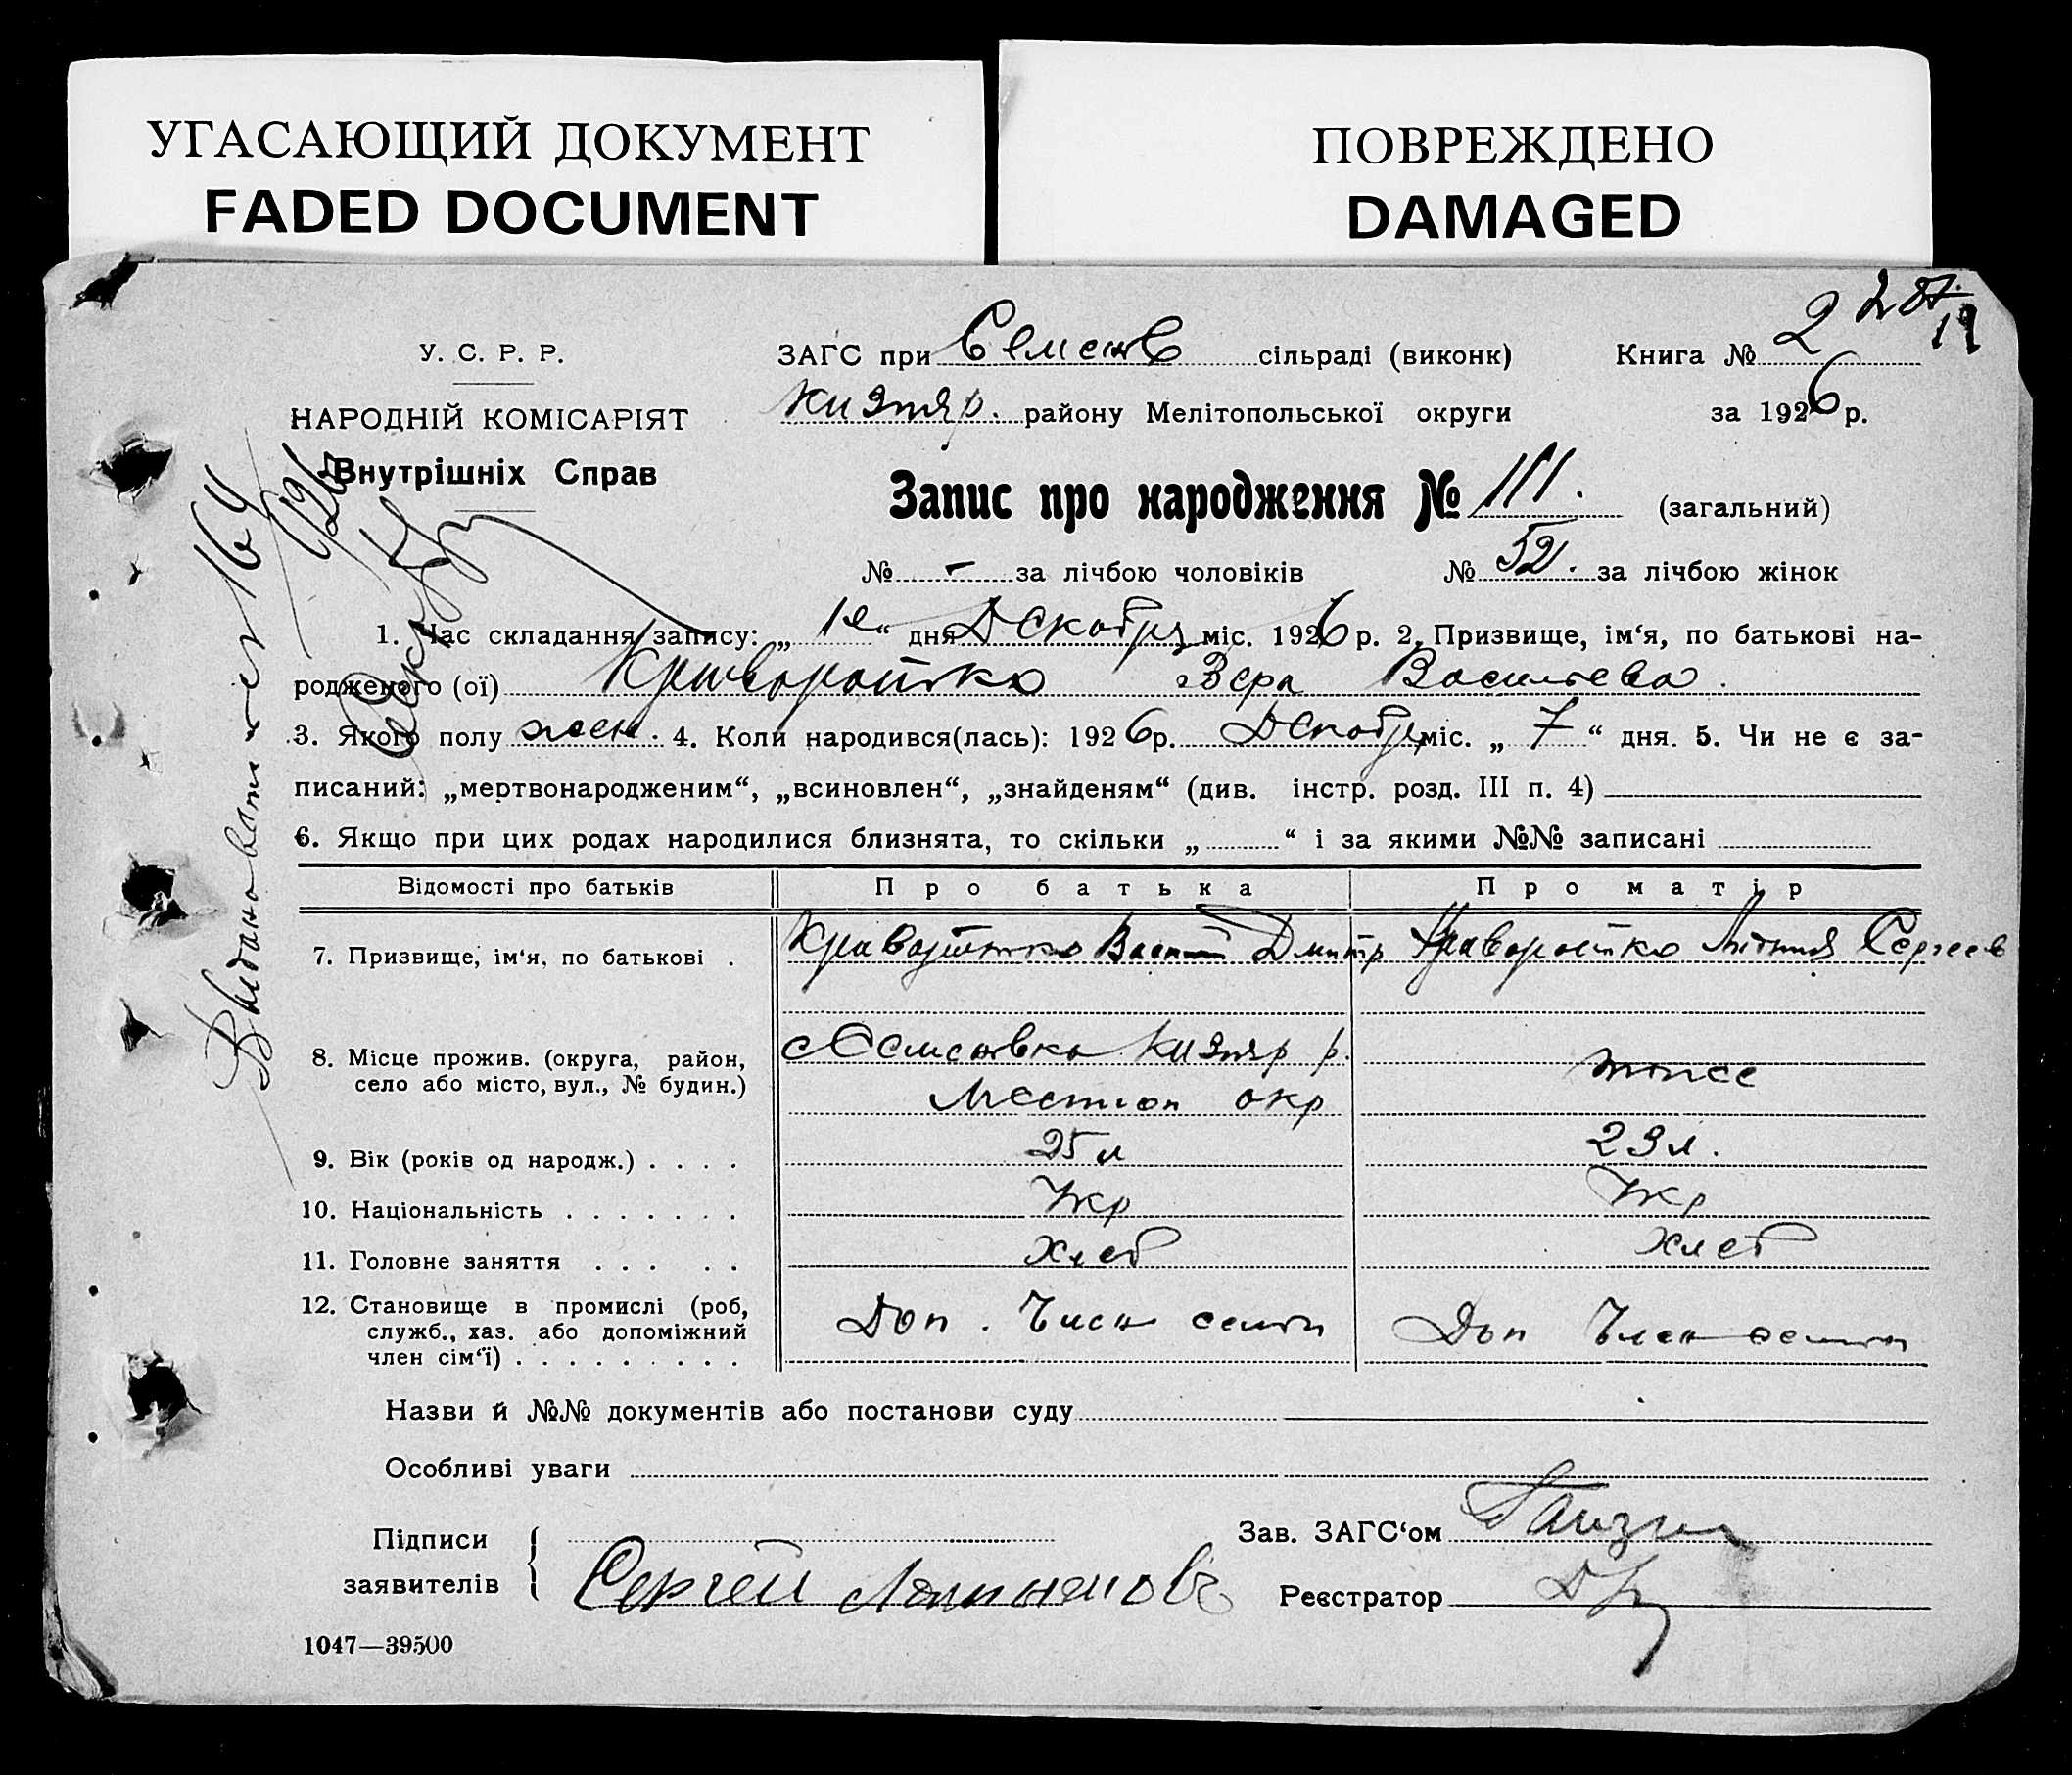 УГАСАЮЩИЙ ДОКУМЕНТ
FADED DOCUMENT
ПОВРЕЖДЕНО
DAMAGED
У. С. Р. Р.
НАРОДНІЙ КОМІСАРІЯТ
Внутрішніх Справ
ЗАГС при Семенов сільраді (виконк)
Книга № 2
Кизияр. району Мелітопольської округи
за 1926 р.
Запис про народження № 111. (загальний)
№ - за лічбою чоловіків № 52. за лічбою жінок
1. Час складання запису: „ “ дня Декабря міс. 1926 р. 2. Призвище, ім‘я, по батькові на-
родженого (ої) Криворотько Вера Васильева.
3. Якого полу жен. 4. Коли народився(лась): 1926 р. Декабря міс. „ 7 “ дня. 5. Чи не є за-
писаний: „мертвонародженим“, „всиновлен“, „знайденям“ (див. інстр. розд. III п. 4)
6. Якщо при цих родах народилися близнята, то скільки „ “ і за якими №№ записані
Відомості про батьків Про батька Про матір
7. Призвище, ім‘я, по батькові . Криворотько Васил Дмитр Криворотько Сергеев
8. Місце прожив. (округа, район, с Семеновка Кизияр р.
село або місто, вул., № будин.) окр тоже
9. Вік (років од народж.) . . . . 25 л 23 л.
10. Національність . . . . . . . Укр Укр
11. Головне заняття . . . . . Хлеб Хлеб
12. Становище в промислі (роб,
служб., хаз. або допоміжний Доп. Член семьи Доп Член семьи
член сім‘ї) . . . . . . . . .
Назви й №№ документів або постанови суду
Особливі уваги
Підписи
заявителів
Сергей
Зав. ЗАГС‘ом
Реєстратор
1047—39500